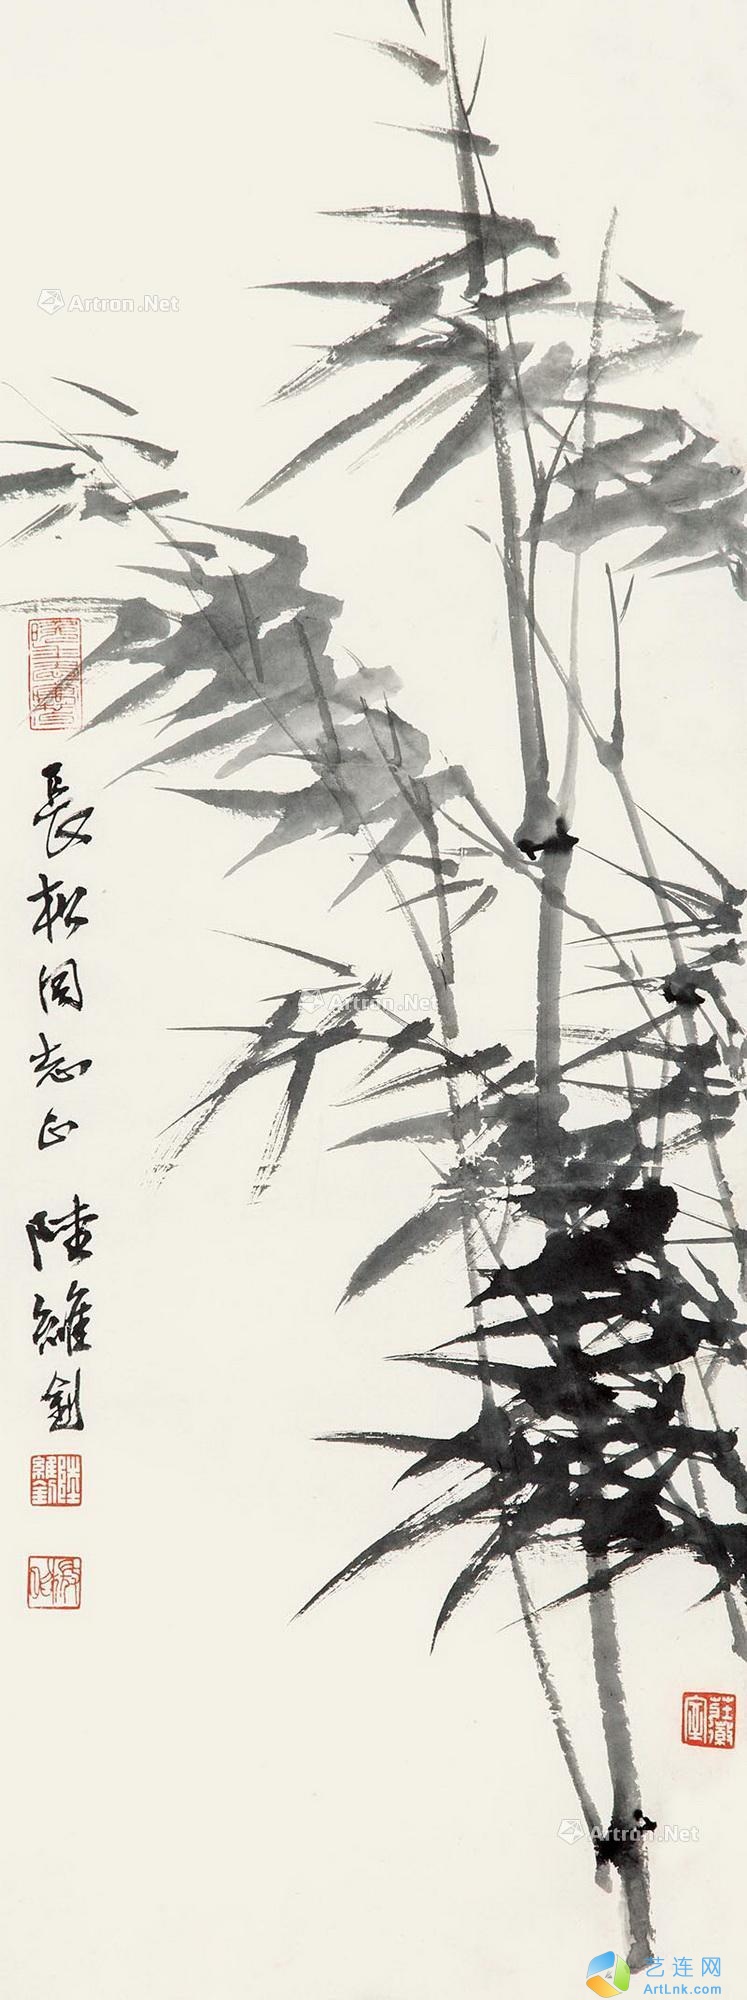 Artron.Net
長松同志正 陸維釗
Artron.Net
陸維釗
莊徽室
Artron.Net
艺连网
ArtLnk.com